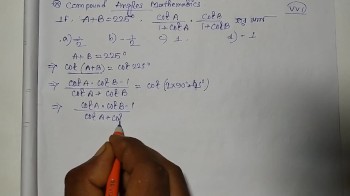 ⊛ Compound Angles Mathematics VVI
If. A+B=225° . cotA/1+cotA · cotB/1+cotB
a.) 1/2 b) -1/2 c) 1 d) -1
A+B = 225°
⇒ cot (A+B) = cot 225°
⇒ cotA · cotB - 1 / cotA + cotB = cot (2×90°+45°)
⇒ cotA · cotB - 1 / cotA + cot